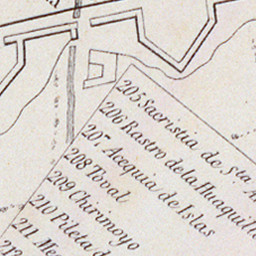 205 Sacristia de Sta. A
206 Rastro de la Huaquilla
207 Acequia de Islas
208 Toval
209 Chirimoyo
210 Pileta d
211
212